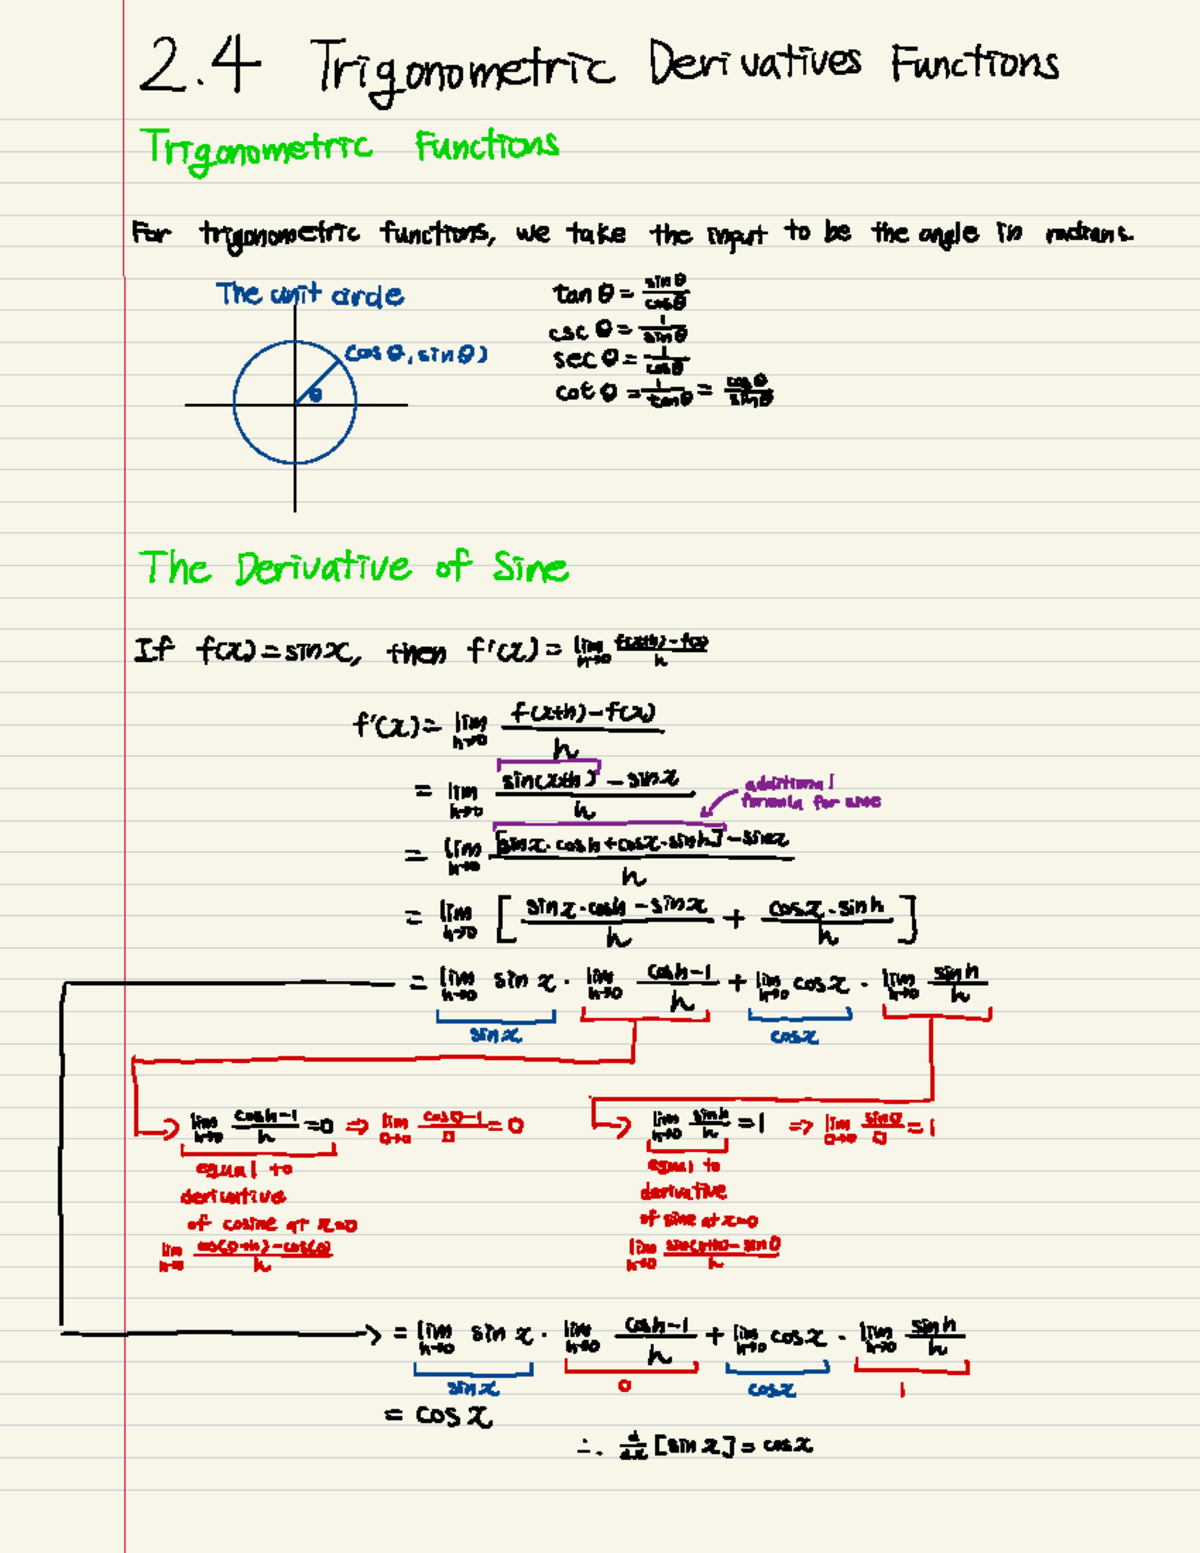 2.4 Trigonometric Derivatives Functions
Trigonometric Functions
For trigonometric functions, we take the input to be the angle in radians.
The unit circle
(cos θ, sin θ)
θ
tan θ = sin θ / cos θ
csc θ = 1 / sin θ
sec θ = 1 / cos θ
cot θ = 1 / tan θ = cos θ / sin θ
The Derivative of Sine
If f(x) = sin x, then f'(x) = lim h→0 f(x+h) - f(x) / h
f'(x) = lim h→0 f(x+h) - f(x) / h
= lim h→0 sin(x+h) - sin x / h
additional
formula for sine
= lim h→0 [sin x · cos h + cos x · sin h] - sin x / h
= lim h→0 [ sin x · cos h - sin x / h + cos x · sin h / h ]
= lim h→0 sin x · lim h→0 cos h - 1 / h + lim h→0 cos x · lim h→0 sin h / h
sin x cos x
lim h→0 cos h - 1 / h = 0 ⇒ lim □→0 cos □ - 1 / □ = 0
equal to
derivative
of cosine at x=0
lim h→0 cos(0+h) - cos(0) / h
lim h→0 sin h / h = 1 ⇒ lim □→0 sin □ / □ = 1
equal to
derivative
of sine at x=0
lim h→0 sin(0+h) - sin 0 / h
= lim h→0 sin x · lim h→0 cos h - 1 / h + lim h→0 cos x · lim h→0 sin h / h
sin x 0 cos x 1
= cos x
∴ d/dx [sin x] = cos x